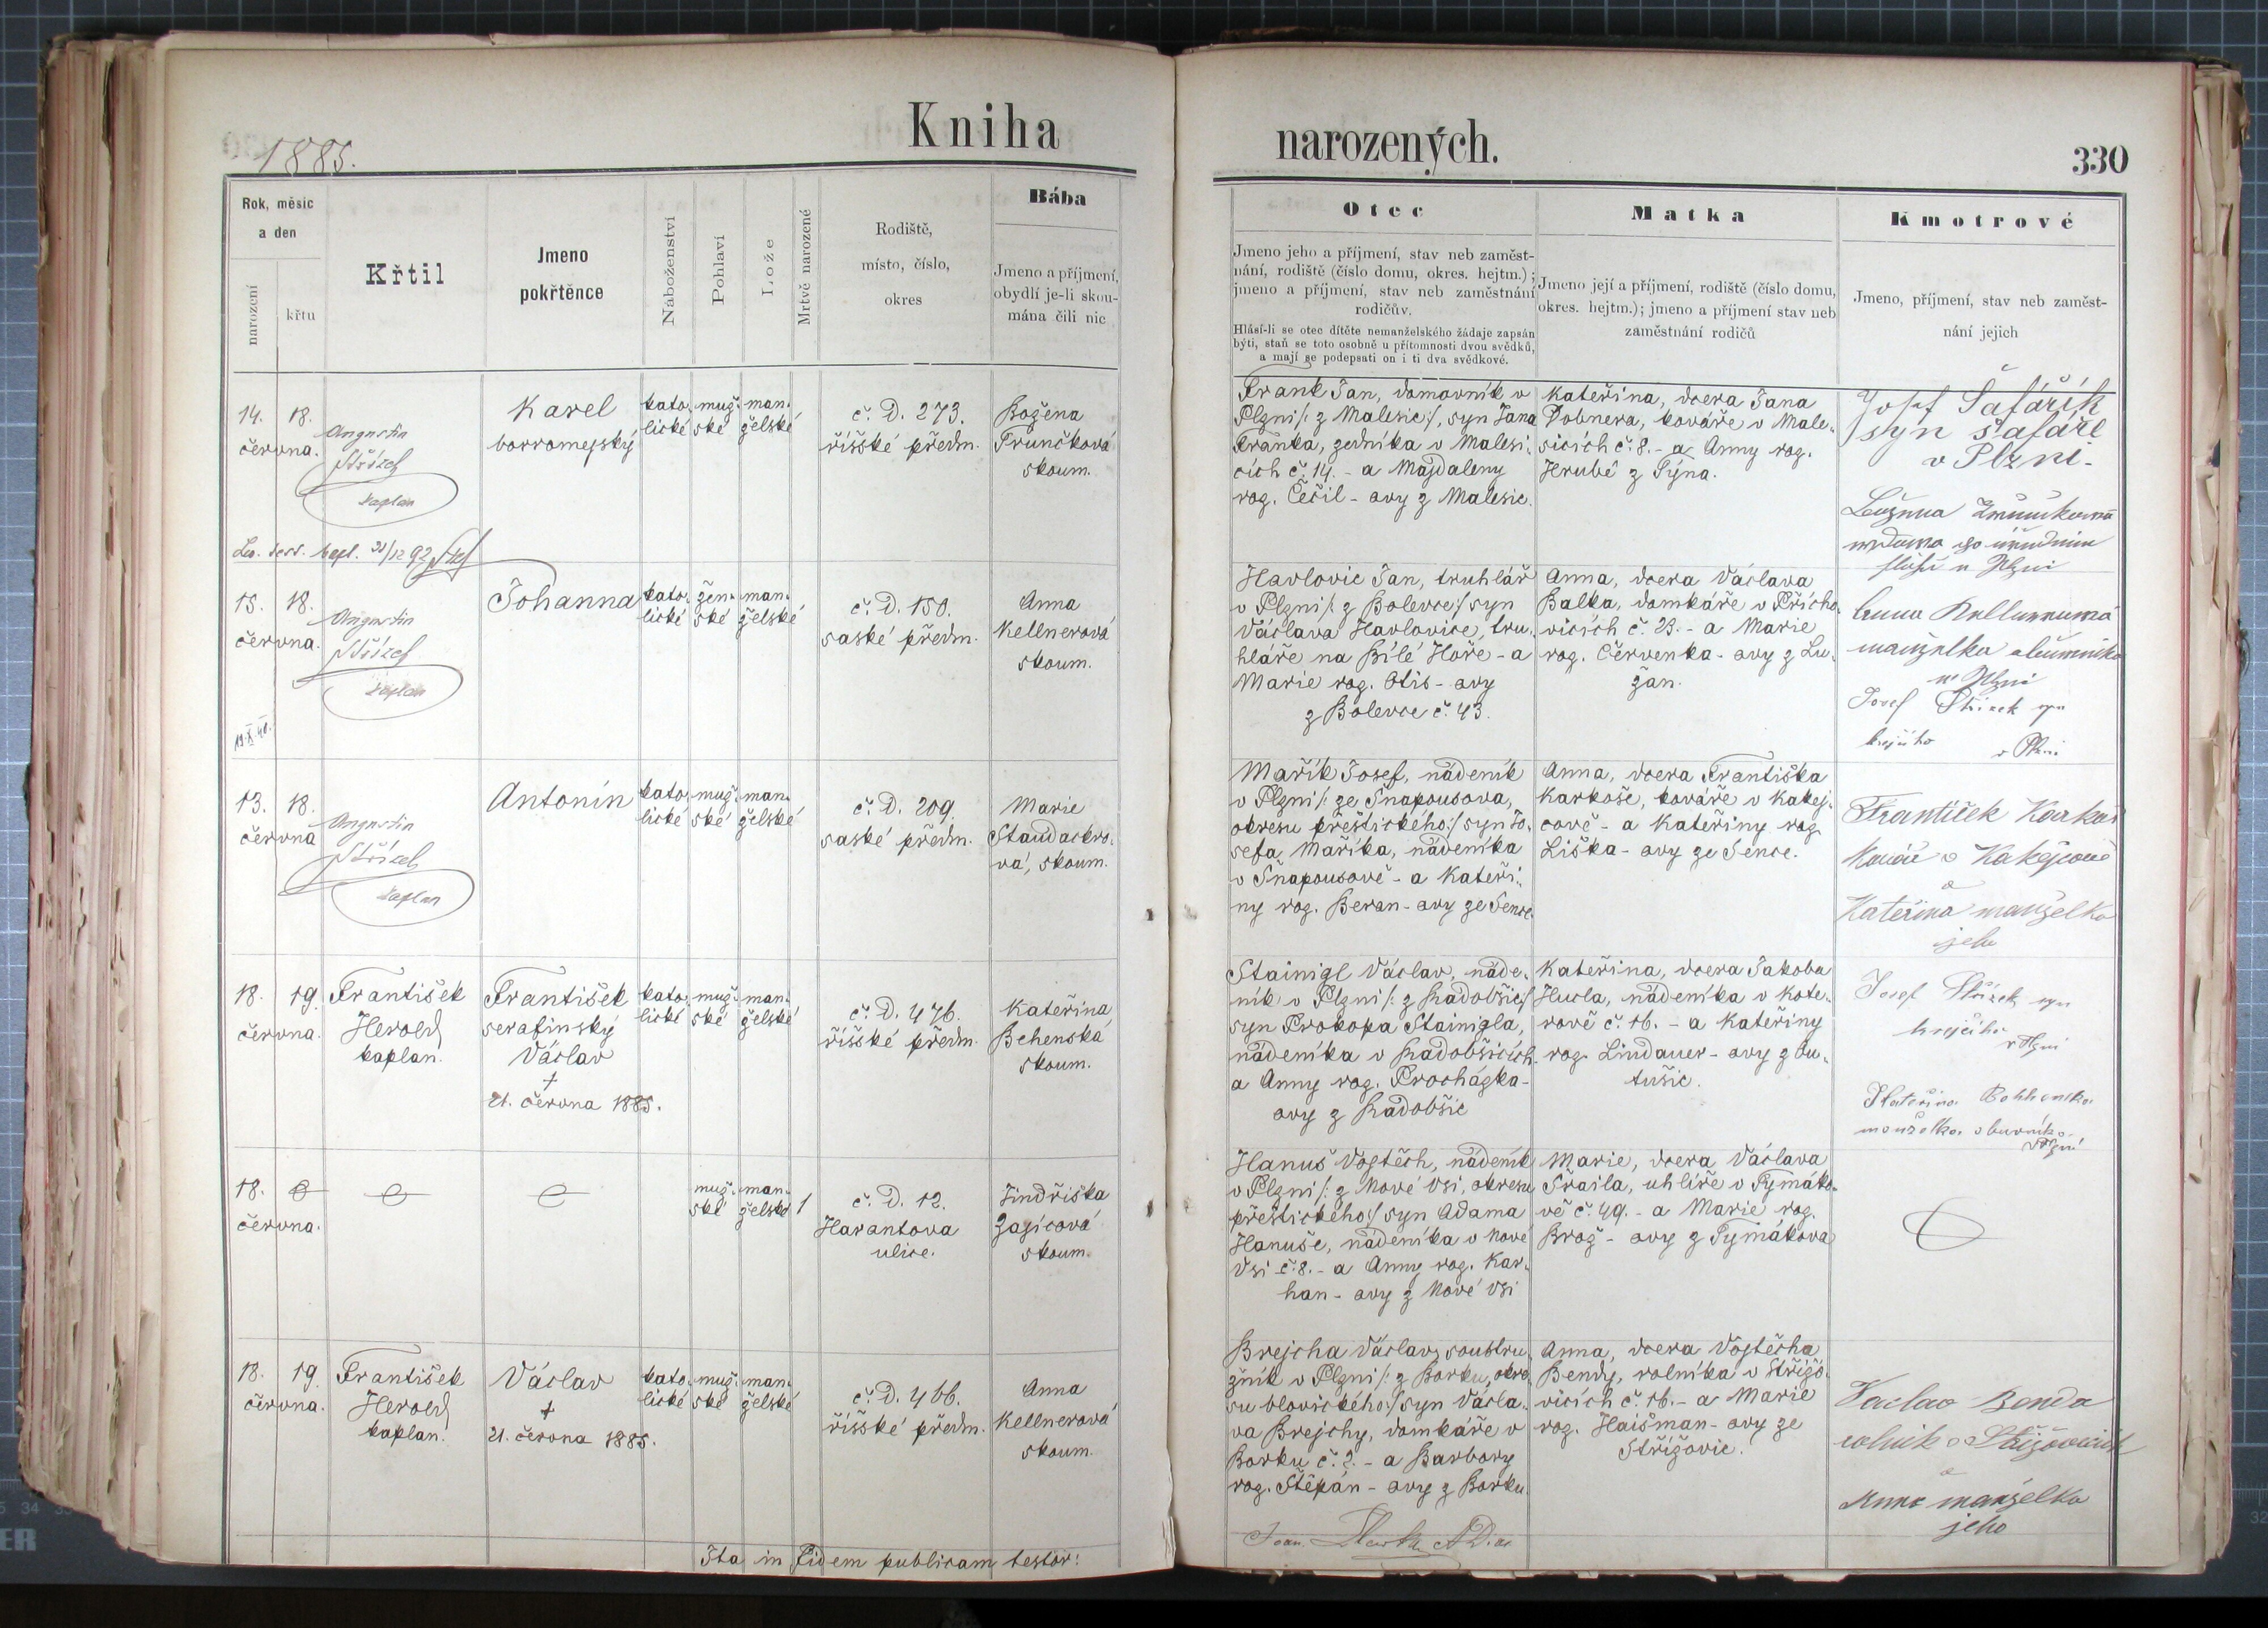 1885.
Kniha
narozených.
330
Rok, měsíc
a den
narození
křtu
Křtil
Jmeno
pokřtěnce
Náboženství
Pohlaví
Lože
Mrtvě narozené
Rodiště,
místo, číslo,
okres
Bába
Jmeno a příjmení,
obydlí je-li skou-
mána čili nic
Otec
Jmeno jeho a příjmení, stav neb zaměst-
nání, rodiště (číslo domu, okres. hejtm.);
jmeno a příjmení, stav neb zaměstnání
rodičův.
Hlásí-li se otec dítěte nemanželského žádaje zapsán
býti, staň se toto osobně u přítomnosti dvou svědků,
a mají se podepsati on i ti dva svědkové.
Matka
Jmeno její a příjmení, rodiště (číslo domu,
okres. hejtm.); jmeno a příjmení stav neb
zaměstnání rodičů
Kmotrové
Jmeno, příjmení, stav neb zaměst-
nání jejich
14. 18.
června.
Augustin
Střízek
kaplan
Karel
borromejský
kato-
lické
muž-
ské
man-
želské
č. D. 273.
říšské předm.
Božena
Trunčková
skoum.
Frank Jan, domovník v
Plzni /: z Malesic :/, syn Jana
Franka, zedníka v Malesi-
cích č. 14. - a Magdaleny
roz. Čečil - ovy z Malesic.
Kateřina, dcera Jana
Dobnera, kováře v Male-
sicích č. 8. - a Anny roz.
Hrubé z Týna.
Josef Šafářík
syn šafáře
v Plzni.
31/12 92
15. 18.
června.
Augustin
Střízek
kaplan
19.X.40.
Johanna
kato-
lické
žen-
ské
man-
želské
č. D. 150.
saské předm.
Anna
Kellnerová
skoum.
Havlovic Jan, truhlář
v Plzni /: z Bolevce :/ syn
Václava Havlovice, tru-
hláře na Bílé Hoře - a
Marie roz. Otis - ovy
z Bolevce č. 43.
Anna, dcera Václava
Balka, domkáře v Přícho-
vicích č. 23. - a Marie
roz. Červenka - ovy z Lu-
žan.
Anna Kellnerová
manželka
v Plzni
Josef Střízek syn
krejčího
v Plzni
13. 18.
června
Augustin
Střízek
kaplan
Antonín
kato-
lické
muž-
ské
man-
želské
č. D. 209.
saské předm.
Marie
Staudackro-
vá, skoum.
Mařík Josef, nádeník
v Plzni /: ze Šnapousova,
okresu přeštického :/ syn Jo-
sefa Maříka, nádeníka
v Šnapousově - a Kateři-
ny roz. Beran - ovy ze Sence.
Anna, dcera Františka
Karkoše, kováře v Kakej-
cově - a Kateřiny roz.
Liška - ovy ze Sence.
František Karkoš
Kovář v Kakejcově
a
Kateřina manželka
jeho
18. 19.
června.
František
Herold
kaplan.
František
serafinský
Václav
†
21. června 1885.
kato-
lické
muž-
ské
man-
želské
č. D. 476.
říšské předm.
Kateřina
Behenská
skoum.
Stainigl Václav, náde-
ník v Plzni /: z Radobšic :/
syn Prokopa Stainigla,
nádeníka v Radobšicích
a Anny roz. Procházka-
ovy z Radobšic
Kateřina, dcera Jakoba
Hucla, nádeníka v Kote-
rově č. 16. - a Kateřiny
roz. Lindauer - ovy z Lu-
tušic.
Josef Střízek syn
krejčího
v Plzni
Kateřina
manželka obuvníka
v Plzni
18.
června.
muž-
ské
man-
želské
1
č. D. 12.
Harantova
ulice.
Jindřiška
Zajícová
skoum.
Hanuš Vojtěch, nádeník
v Plzni /: z Nové Vsi, okresu
přeštického :/ syn Adama
Hanuše, nádeníka v Nové
Vsi č. 8. - a Anny roz. Kar-
han - ovy z Nové Vsi
Marie, dcera Václava
Šraila, uhlíře v Tymáko-
vě č. 49. - a Marie roz.
Brož - ovy z Tymákova
18. 19.
června.
František
Herold
kaplan.
Václav
†
21. června 1885.
kato-
lické
muž-
ské
man-
želské
č. D. 466.
říšské předm.
Anna
Kellnerová
skoum.
Brejcha Václav, soustru-
žník v Plzni /: z Borku, okre-
su blovického :/ syn Václa-
va Brejchy, domkáře v
Borku č. 2. - a Barbory
roz. Štěpán - ovy z Borku.
Anna, dcera Vojtěcha
Bendy, rolníka v Střížo-
vicích č. 16. - a Marie
roz. Haišman - ovy ze
Střížovic.
Vaclav Benda
rolník v Střížovicích
a
Anna manželka
jeho
Ita in fidem publicam testor: